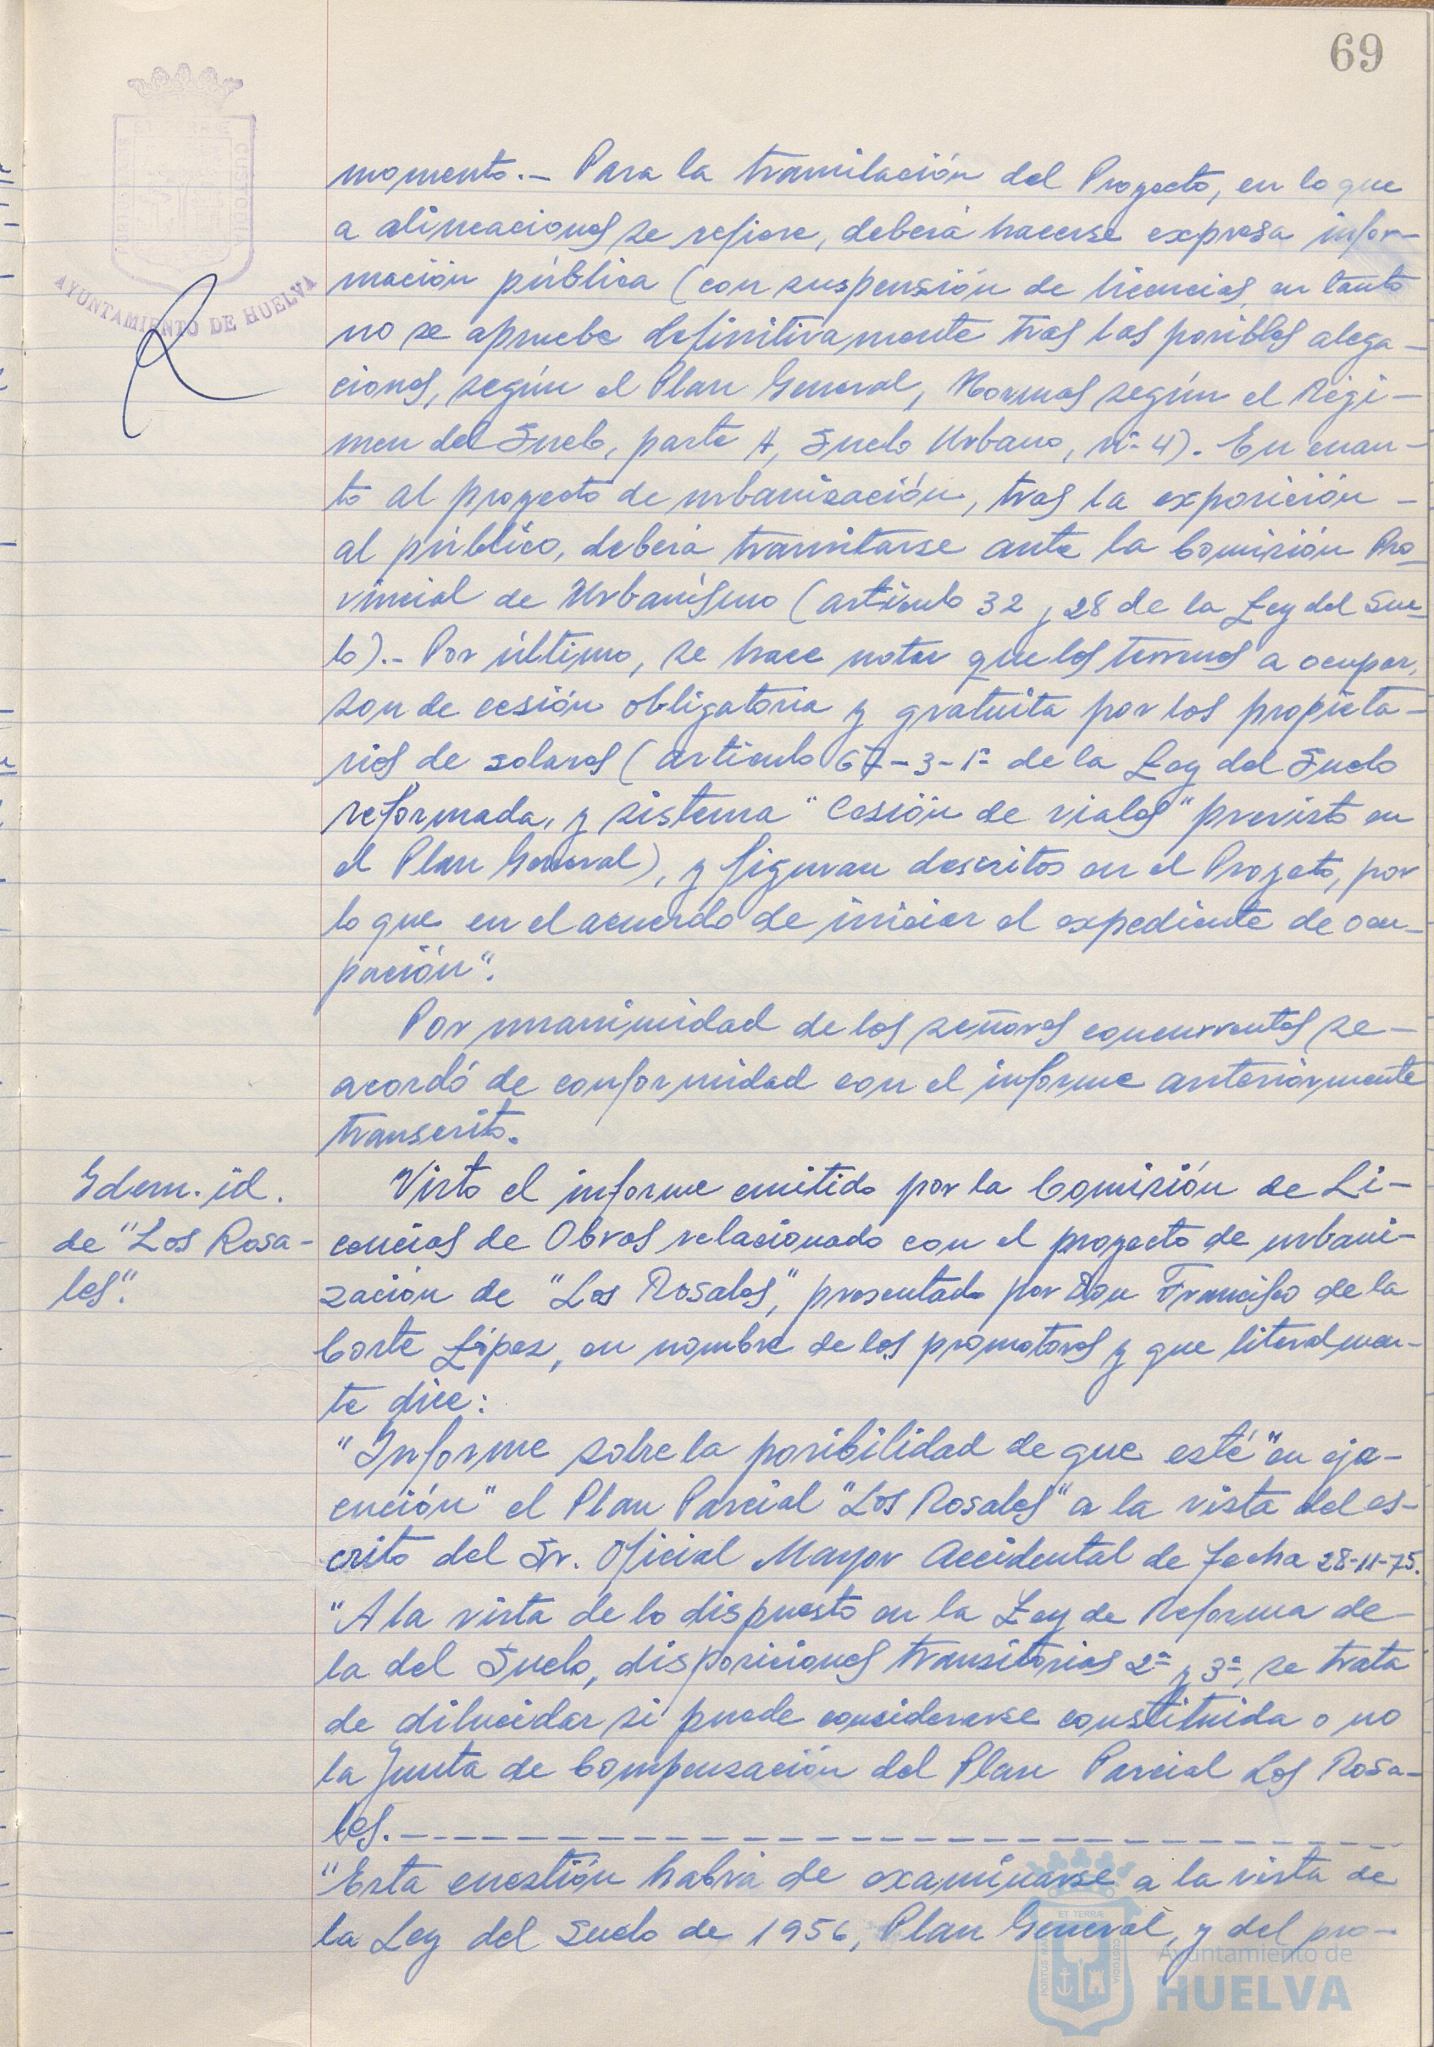 69
AYUNTAMIENTO DE HUELVA
momento.- Para la tramitación del Proyecto, en lo que
a alineaciones se refiere, deberá hacerse expresa infor-
mación pública (con suspensión de licencias, en tanto
no se apruebe definitivamente tras las posibles alega-
ciones, según el Plan General, Normas según el Régi-
men del Suelo, parte A, Suelo Urbano, nº 4). En cuan-
to al proyecto de urbanización, tras la exposición -
al público, deberá tramitarse ante la Comisión Pro-
vincial de Urbanismo (artículo 32 y 28 de la Ley del Sue-
lo).- Por último, se hace notar que los terrenos a ocupar,
son de cesión obligatoria y gratuita por los propieta-
rios de solares (artículo 67-3-1º de la Ley del Suelo
reformada, y sistema "Cesión de viales" previsto en
el Plan General), y figuran descritos en el Proyecto, por
lo que en el acuerdo de iniciar el expediente de ocu-
pación".
Por unanimidad de los señores concurrentes se-
acordó de conformidad con el informe anteriormente
transcrito.
Idem. id.
de "Los Rosa-
les".
Visto el informe emitido por la Comisión de Li-
cencias de Obras relacionado con el proyecto de urbani-
zación de "Los Rosales", presentado por Don Francisco de la
Corte López, en nombre de los promotores y que literalmen-
te dice:
"Informe sobre la posibilidad de que esté "en eje-
cución" el Plan Parcial "Los Rosales" a la vista del es-
crito del Sr. Oficial Mayor Accidental de fecha 28-11-75.
"A la vista de lo dispuesto en la Ley de Reforma de-
la del Suelo, disposiciones transitorias 2ª y 3ª, se trata
de dilucidar si puede considerarse constituida o no
la Junta de Compensación del Plan Parcial Los Rosa-
les.-
"Esta cuestión habrá de examinarse a la vista de
la Ley del Suelo de 1956, Plan General, y del pro-
Ayuntamiento de
HUELVA